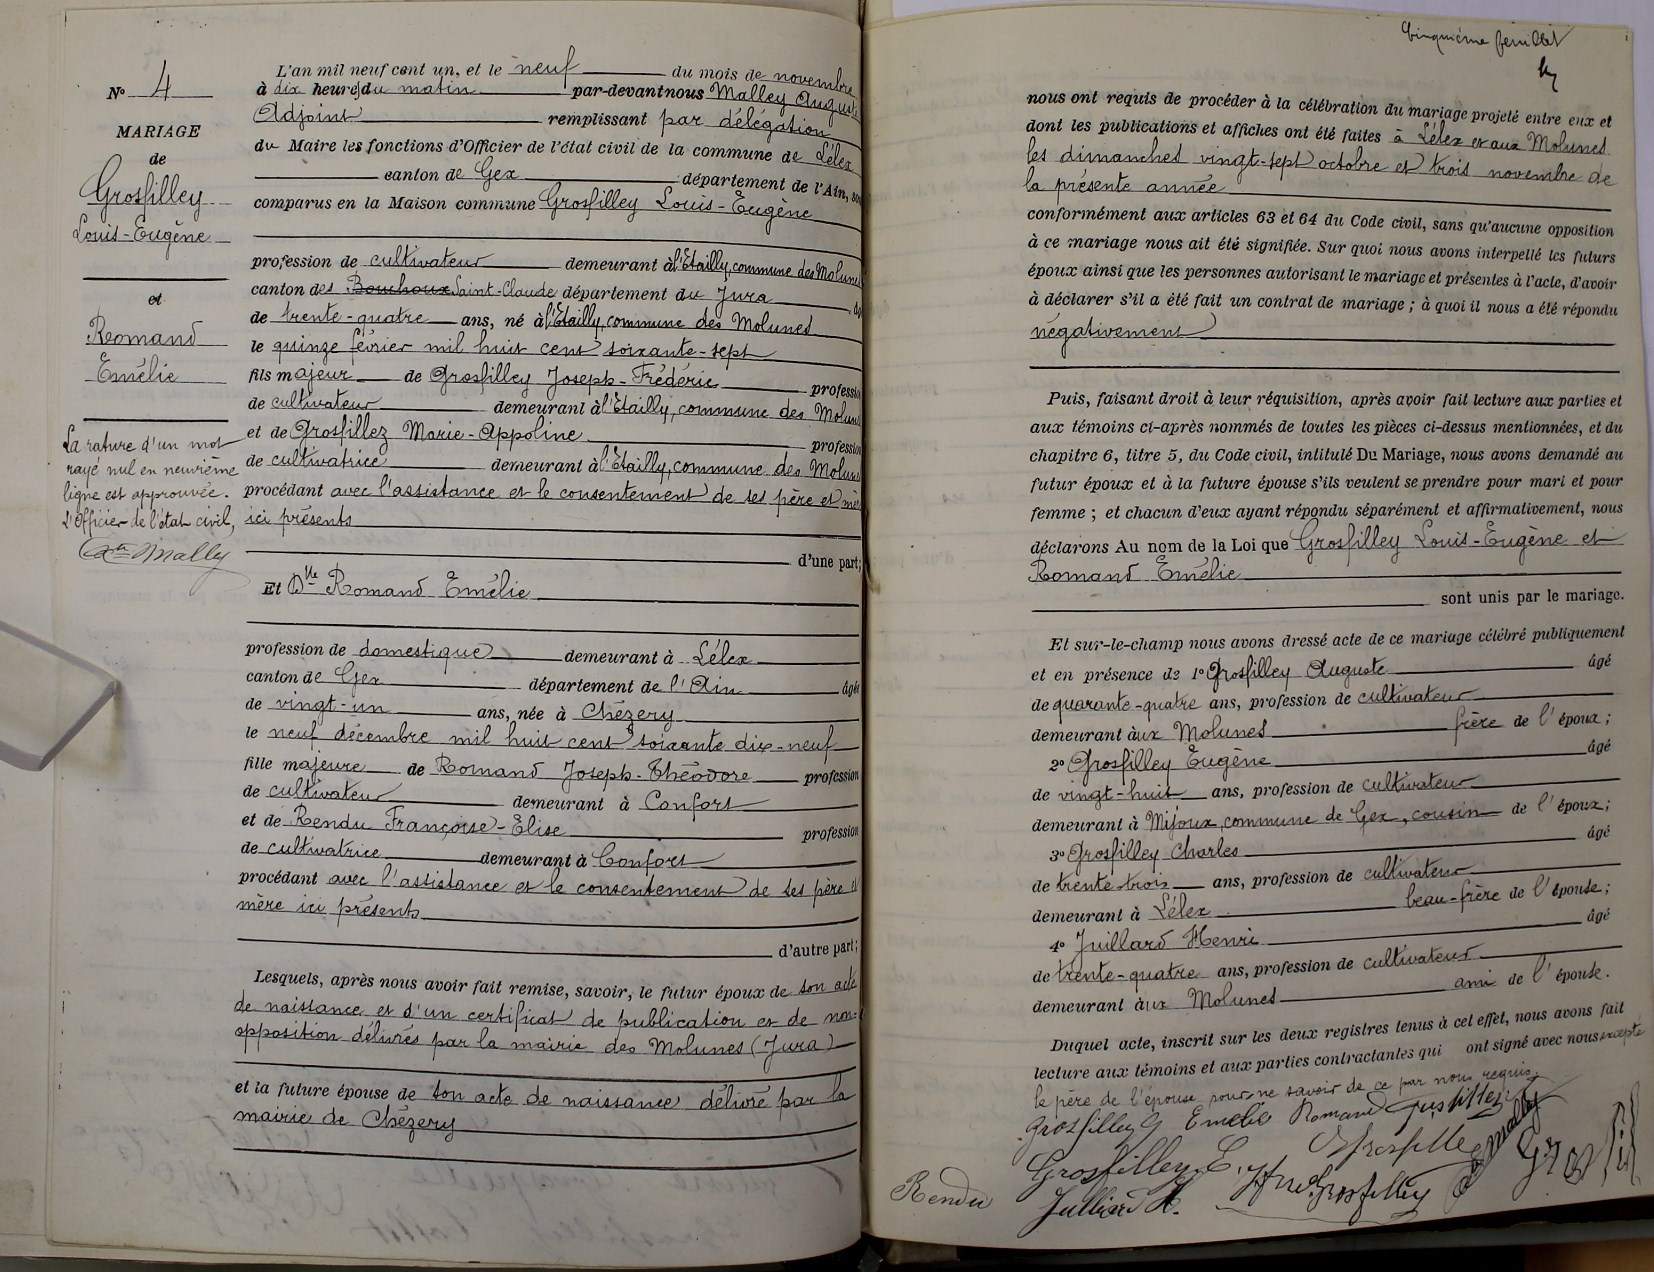 N° 4
MARIAGE
de
Grosfilley
Louis-Eugène
et
Romand
Emélie
La rature d'un mot
rayé nul en neuvième
ligne est approuvée.
L'Officier de l'état civil,
Mally
L'an mil neuf cent un, et le neuf du mois de novembre
à dix heures du matin par-devant nous Malley Auguste
Adjoint remplissant par délégation
du Maire les fonctions d'Officier de l'état civil de la commune de Lélex
canton de Gex département de l'Ain, son
comparus en la Maison commune Grosfilley Louis-Eugène
profession de cultivateur demeurant à l'Etailly, commune des Molunes
canton des Bouchoux Saint-Claude département du Jura
de trente-quatre ans, né à l'Etailly, commune des Molunes
le quinze février mil huit cent soixante-sept
fils majeur de Grosfilley Joseph-Frédéric profession
de cultivateur demeurant à l'Etailly, commune des Molunes
et de Grosfillez Marie-Appoline profession
de cultivatrice demeurant à l'Etailly, commune des Molunes
procédant avec l'assistance et le consentement de ses père et mère
ici présents
d'une part;
Et Dlle Romand Emélie
profession de domestique demeurant à Lélex
canton de Gex département de l'Ain âgée
de vingt-un ans, née à Chézery
le neuf décembre mil huit cent soixante dix-neuf
fille majeure de Romand Joseph-Théodore profession
de cultivateur demeurant à Confort
et de Rendu Françoise-Elise profession
de cultivatrice demeurant à Confort
procédant avec l'assistance et le consentement de ses père et
mère ici présents
d'autre part;
Lesquels, après nous avoir fait remise, savoir, le futur époux de son acte
de naissance et d'un certificat de publication et de non-
opposition délivrés par la mairie des Molunes (Jura)
et la future épouse de son acte de naissance délivré par la
mairie de Chézery
Cinquième feuillet
nous ont requis de procéder à la célébration du mariage projeté entre eux et
dont les publications et affiches ont été faites à Lélex et aux Molunes
les dimanches vingt-sept octobre et trois novembre de
la présente année
conformément aux articles 63 et 64 du Code civil, sans qu'aucune opposition
à ce mariage nous ait été signifiée. Sur quoi nous avons interpellé les futurs
époux ainsi que les personnes autorisant le mariage et présentes à l'acte, d'avoir
à déclarer s'il a été fait un contrat de mariage ; à quoi il nous a été répondu
négativement
Puis, faisant droit à leur réquisition, après avoir fait lecture aux parties et
aux témoins ci-après nommés de toutes les pièces ci-dessus mentionnées, et du
chapitre 6, titre 5, du Code civil, intitulé Du Mariage, nous avons demandé au
futur époux et à la future épouse s'ils veulent se prendre pour mari et pour
femme ; et chacun d'eux ayant répondu séparément et affirmativement, nous
déclarons Au nom de la Loi que Grosfilley Louis-Eugène et
Romand Emélie
sont unis par le mariage.
Et sur-le-champ nous avons dressé acte de ce mariage célébré publiquement
et en présence de 1° Grosfilley Auguste âgé
de quarante-quatre ans, profession de cultivateur
demeurant aux Molunes frère de l'époux ;
2° Grosfilley Eugène âgé
de vingt-huit ans, profession de cultivateur
demeurant à Mijoux, commune de Gex, cousin de l'époux ;
3° Grosfilley Charles âgé
de trente-trois ans, profession de cultivateur
demeurant à Lélex beau-frère de l'épouse ;
4° Juillard Henri âgé
de trente-quatre ans, profession de cultivateur
demeurant aux Molunes ami de l'épouse.
Duquel acte, inscrit sur les deux registres tenus à cet effet, nous avons fait
lecture aux témoins et aux parties contractantes qui ont signé avec nous excepté
le père de l'épouse pour ne savoir de ce par nous requis.
Grosfilley Emélie Romand
Grosfilley E. Grosfilley
Rendu Julliard H.